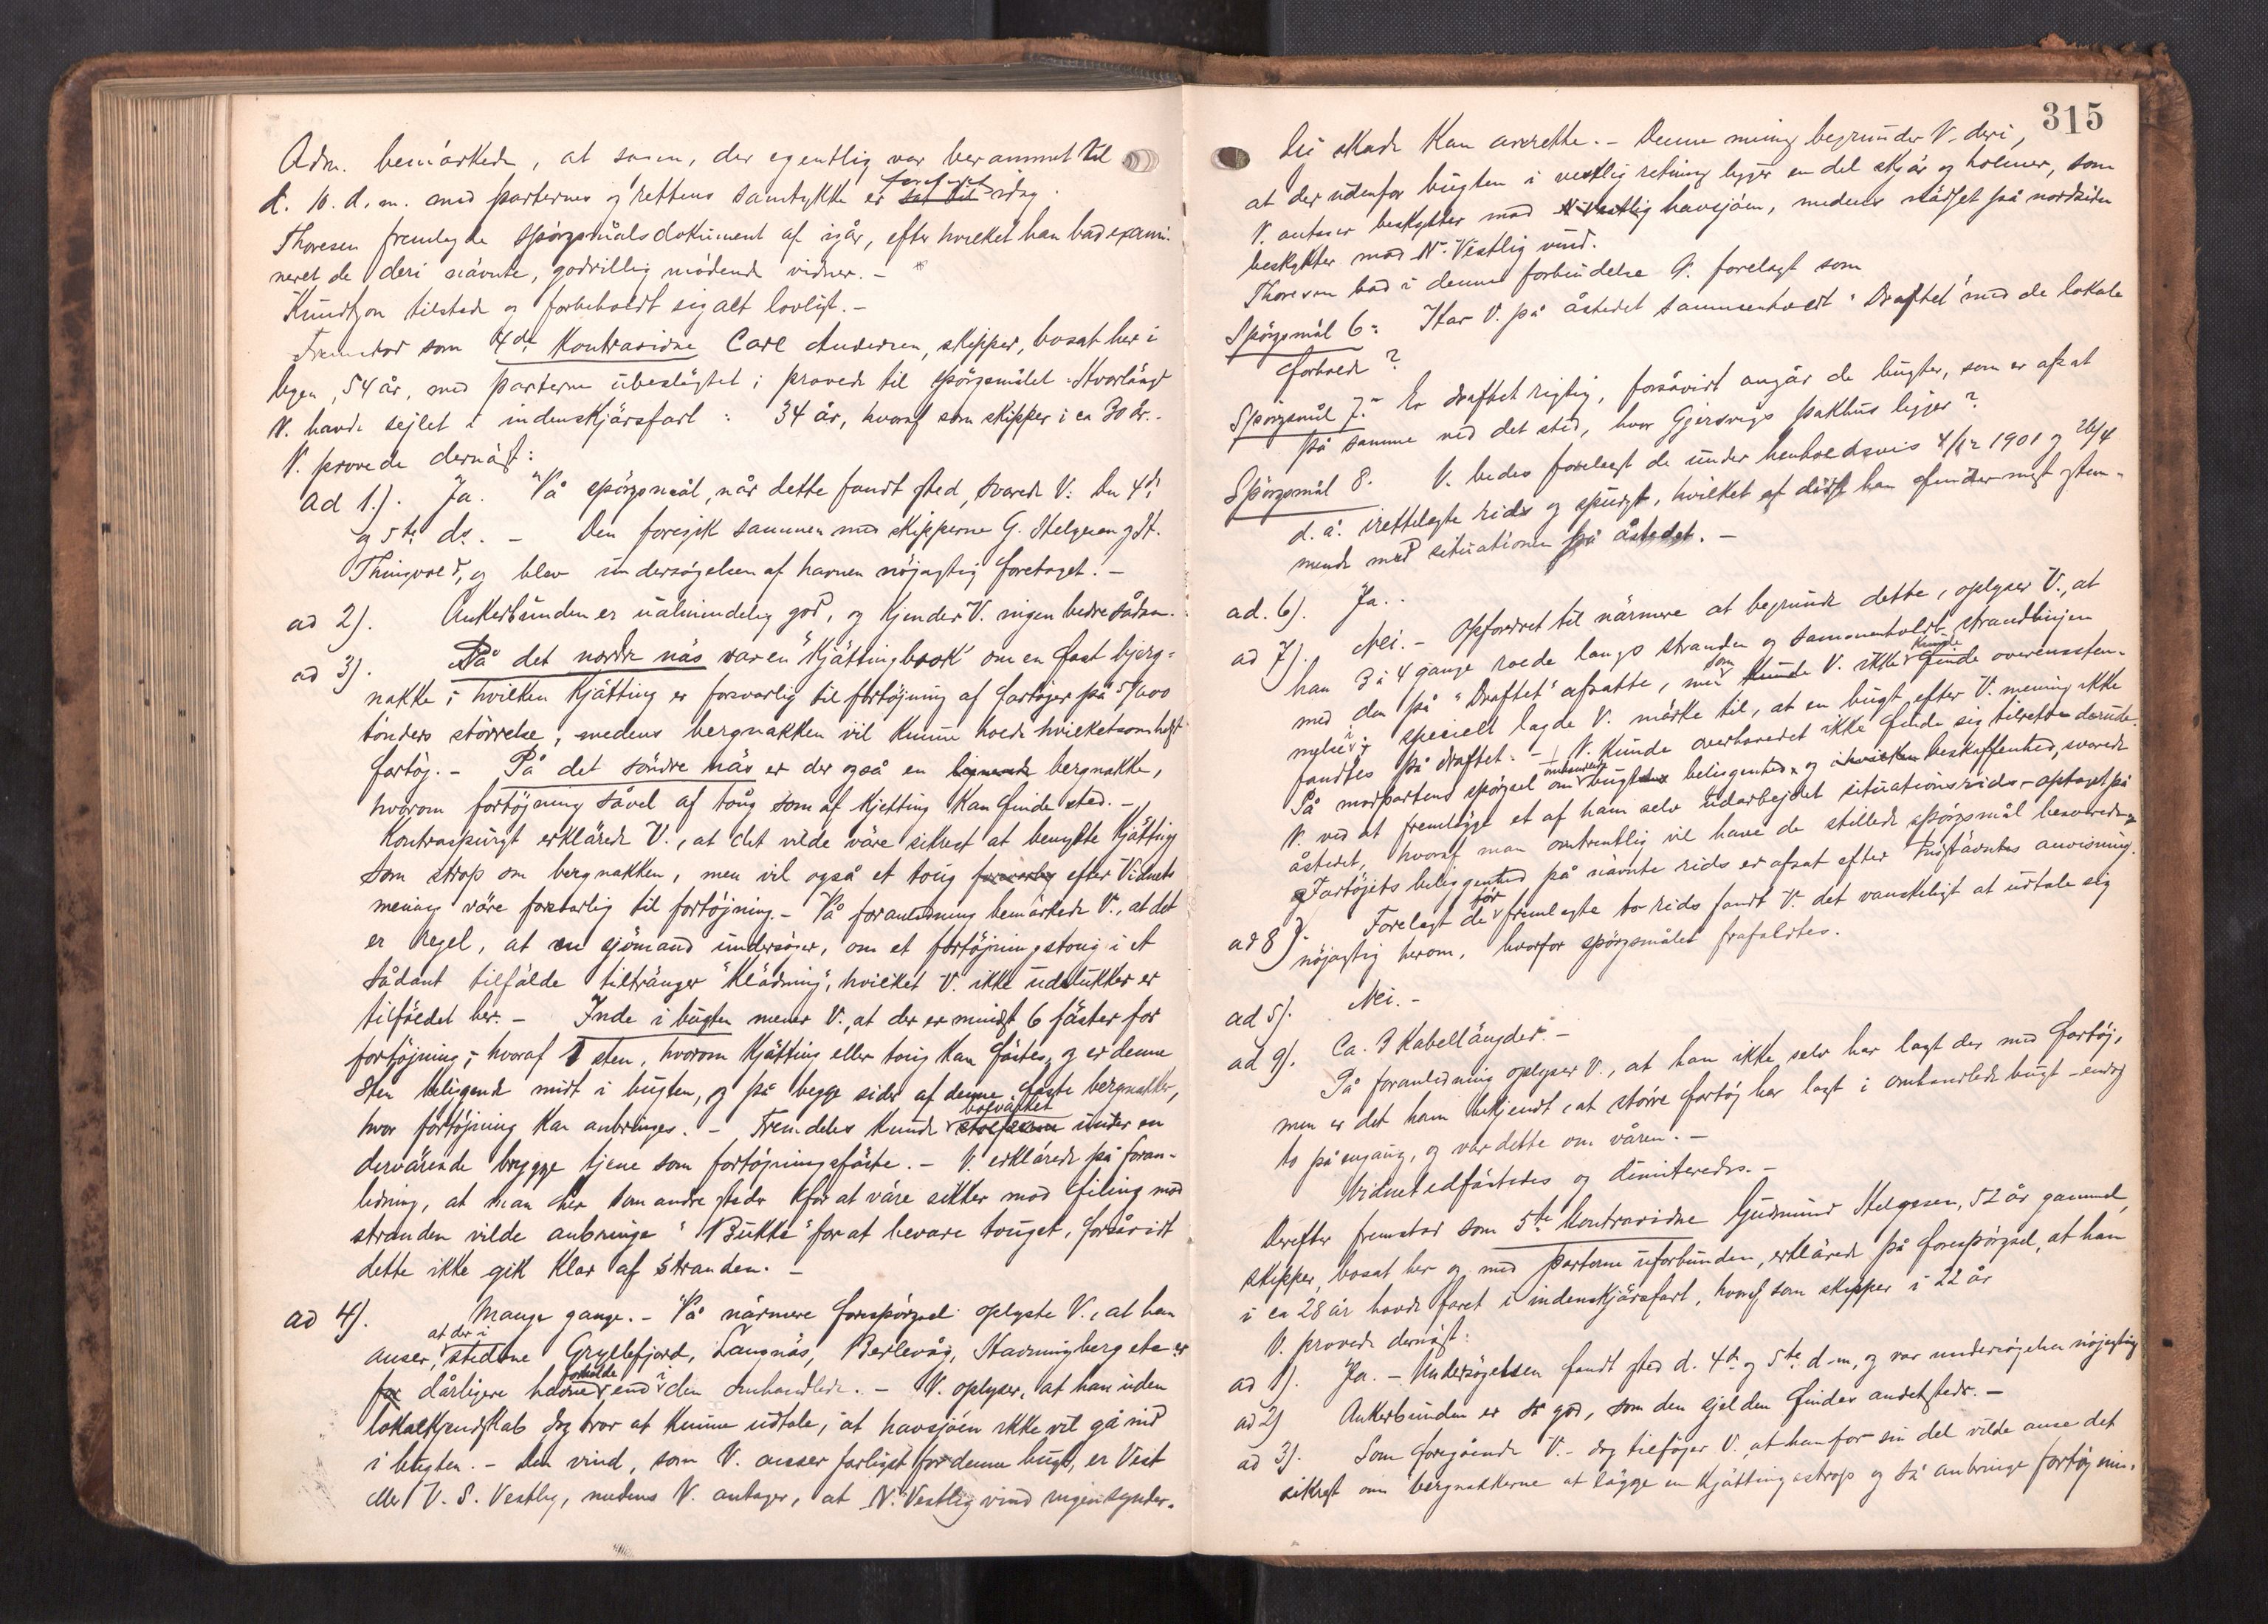 Adm. bemärkede, at sagen, der egentlig var berammet til
d. 10. d. m. med parternes og rettens samtykke er foretaget idag.
Thoresen fremlagde spörgsmålsdokument af igår, efter hvilket han bad exami-
neret de deri nävnte, godvillig mödende vidner. -
Knudtzon tilstede og forbeholdt sig alt lovligt. -
Fremstod som 4de Kontravidne Carl Andersen, skipper, bosat her i
byen, 54 år, med parterne ubeslägtet; provede til spörgsmålet: Hvorlänge
V. havde sejlet i indenskjärsfart: 34 år, hvoraf som skipper i ca 30 år. -
V. provede dernäst:
ad 1). Ja. På spörgsmål, når dette fandt sted, svarede V: Den 4de
og 5te ds. - Den foregik sammen med skipperne G. Helgesen og St.
Thingvold, og blev undersögelsen af havnen nöjagtig foretaget. -
ad 2). Ankerbunden er ualmindelig god, og kjender V. ingen bedre sådan.
ad 3). På det nordre näs var en "Kjättingkrok" om en fast bjerg-
nakke, hvilken Kjätting er forsvarlig til fortöjning af fartöjer på 5/600
tönders störrelse, medens bergnakken vil kunne holde hvilketsomhelst
fartöj. - På det söndre näs er der også en lignende bergnakke,
hvorom fortöjning såvel af toug som af Kjetting kan finde sted. -
Kontraspurgt erklärede V., at det vilde väre sikrest at benytte Kjätting
som strop om bergnakken, men vil også et toug forsvarlig efter Vidnets
mening väre forsvarlig til fortöjning. - På foranledning bemärkede V., at det
er regel, at en sjömand undersöger, om et fortöjningstoug i et
sådant tilfälde tiltränger "Klädning", hvilket V. ikke udelukker er
tilfäldet her. - Inde i bugten mener V., at der er mindst 6 fäster for
fortöjning, hvoraf 1 sten, hvorom Kjätting eller toug kan fästes, og er denne
sten beliggende midt i bugten, og på begge sider af denne faste bergnakker,
hvor fortöjning kan anbringes. - Fremdeles kunde bolvärket stolperne under en
dervärende brygge tjene som fortöjningsfäste. - V. erklärede på foran-
ledning, at man her som andre steder for at väre sikker mod filing mod
stranden vilde anbringe "Bukke" for at bevare touget, forsåvidt
dette ikke gik klar af stranden. -
ad 4). Mange gange. - På närmere forespörgsel oplyste V., at han
anser, at der i stederne Gryllefjord, Langnäs, Berlevåg, Havningberg etc er
for dårligere havneforholde end i den omhandlede. - V. oplyser, at han uden
lokalkjendskab dog tror at kunne udtale, at havsjöen ikke vil gå ind
i bugten. - Den vind, som V. anser farligst for denne bugt, er Vest
eller V. S. Vestlig, medens V. antager, at N. Vestlig vind ingen synder-
315
lig skade kan anrette. - Denne mening begrunder V. deri,
at der udenfor bugten i vestlig retning ligger en del skjär og holmer, som
V. antager beskytter mod N. Vestlig havsjöen, medens nässet på nordsiden
beskytter mod N. Vestlig vind.
Thoresen bad i denne forbindelse V. forelagt som
Spörgsmål 6: Har V. på åstedet sammenholdt "Draftet" med de lokale
forholde?
Spörgsmål 7: Er draftet rigtig, forsåvidt angår de bugter, som er afsat
på samme ved det sted, hvor Gjersvigs pakhus ligger?
Spörgsmål 8. V. bedes forelagt de under henholdsvis 4/12 1901 og 26/4
d. å. irettelagte rids og spurgt, hvilket af disse han finder mest stem-
mende med situationen på åstedet. -
ad. 6). Ja. -
ad 7). Nei. - Opfordret til närmere at begrunde dette, oplyser V., at
han 3 á 4 gange roede langs stranden og sammenholdt strandlinjen
med den på "Draftet" afsatte, som V. ikke kunde finde overensstem-
mende; specielt lagde V. märke til, at en bugt efter V. mening ikke
fandtes på draftet. - V. kunde overhovedet ikke finde sig tilrette derude.
På modpartens spörgsel om omhandlede bugts beliggenhed og beskaffenhed, svarede
V. ved at fremlägge et af ham selv udarbejdet situationsrids - optaget på
åstedet, hvoraf man omtrentlig vil have de stillede spörgsmål besvarede. -
Fartöjets beliggenhed på nävnte rids er afsat efter Indstävntes anvisning.
ad 8). Forelagt de för fremlagte to rids fandt V. det vanskeligt at udtale sig
nöjagtig herom, hvorfor spörgsmålet frafaldtes.
ad 5). Nei. -
ad 9). Ca. 3 Kabellängder. -
På foranledning oplyser V., at han ikke selv har lagt der med fartöj,
men er det ham bekjendt, at större fartöj har lagt i omhandlede bugt - endog
to på engang, og var dette om våren. -
Vidnet edfästedes og dimitteredes. -
Derefter fremstod som 5te Kontravidne Gudmund Helgesen, 52 år gammel,
skipper, bosat her og med parterne uforbunden, erklärede på forespörgsel, at han
i ca 28 år havde faret i indenskjärsfart, hvoraf som skipper i 22 år
V. provede dernäst:
ad 1). Ja. - Undersögelsen fandt sted d. 4de og 5te d. m, og var undersögelsen nöjagtig.
ad 2) Ankerbunden er så god, som den sjelden findes andetsteds. -
ad 3). Som foregående V. - dog tilföjer V., at han for sin del vilde anse det
sikrest om bergnakkerne at lägge en Kjättingstrop og så anbringe fortöjnin-